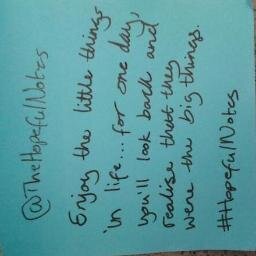 @TheHopefulNotes
Enjoy the little things
in life...for one day,
you'll look back and
realise that they
were the big things.
#HopefulNotes